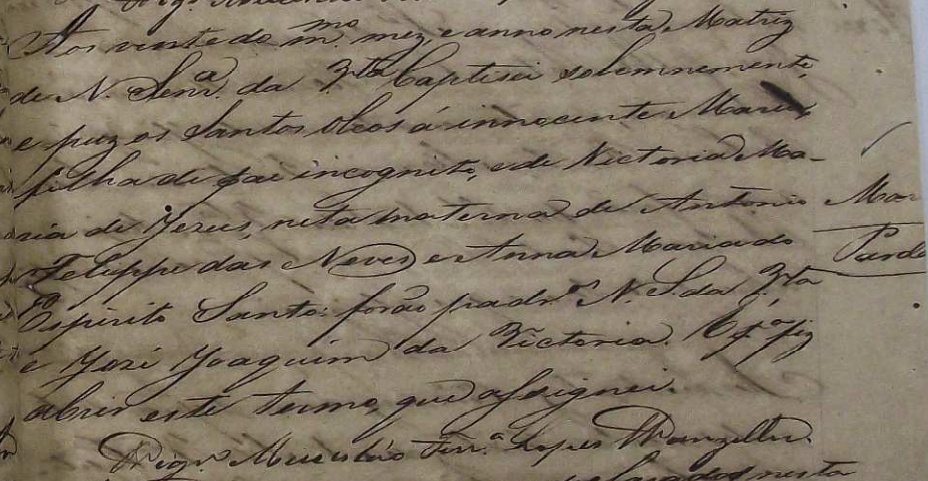 Aos vinte do m.mo mez, e anno nesta Matriz
de N. Senr.a da Vta baptisei solemnemente,
e puz os Santos Oleos á innocente Maria,
filha de pai incognito, e de Victoria Ma-
ria de Jezus, neta materna de Antonio
Felippe das Neves e Anna Maria do
Espirito Santo: forão padr.os N. S. da Vta
e José Joaquim da Victoria. E p.a q. fiz
abrir este termo, que assignei.
Vigr.o Micesláo Ferr.a Lopes Wanzeller
nesta
Mar
Pard